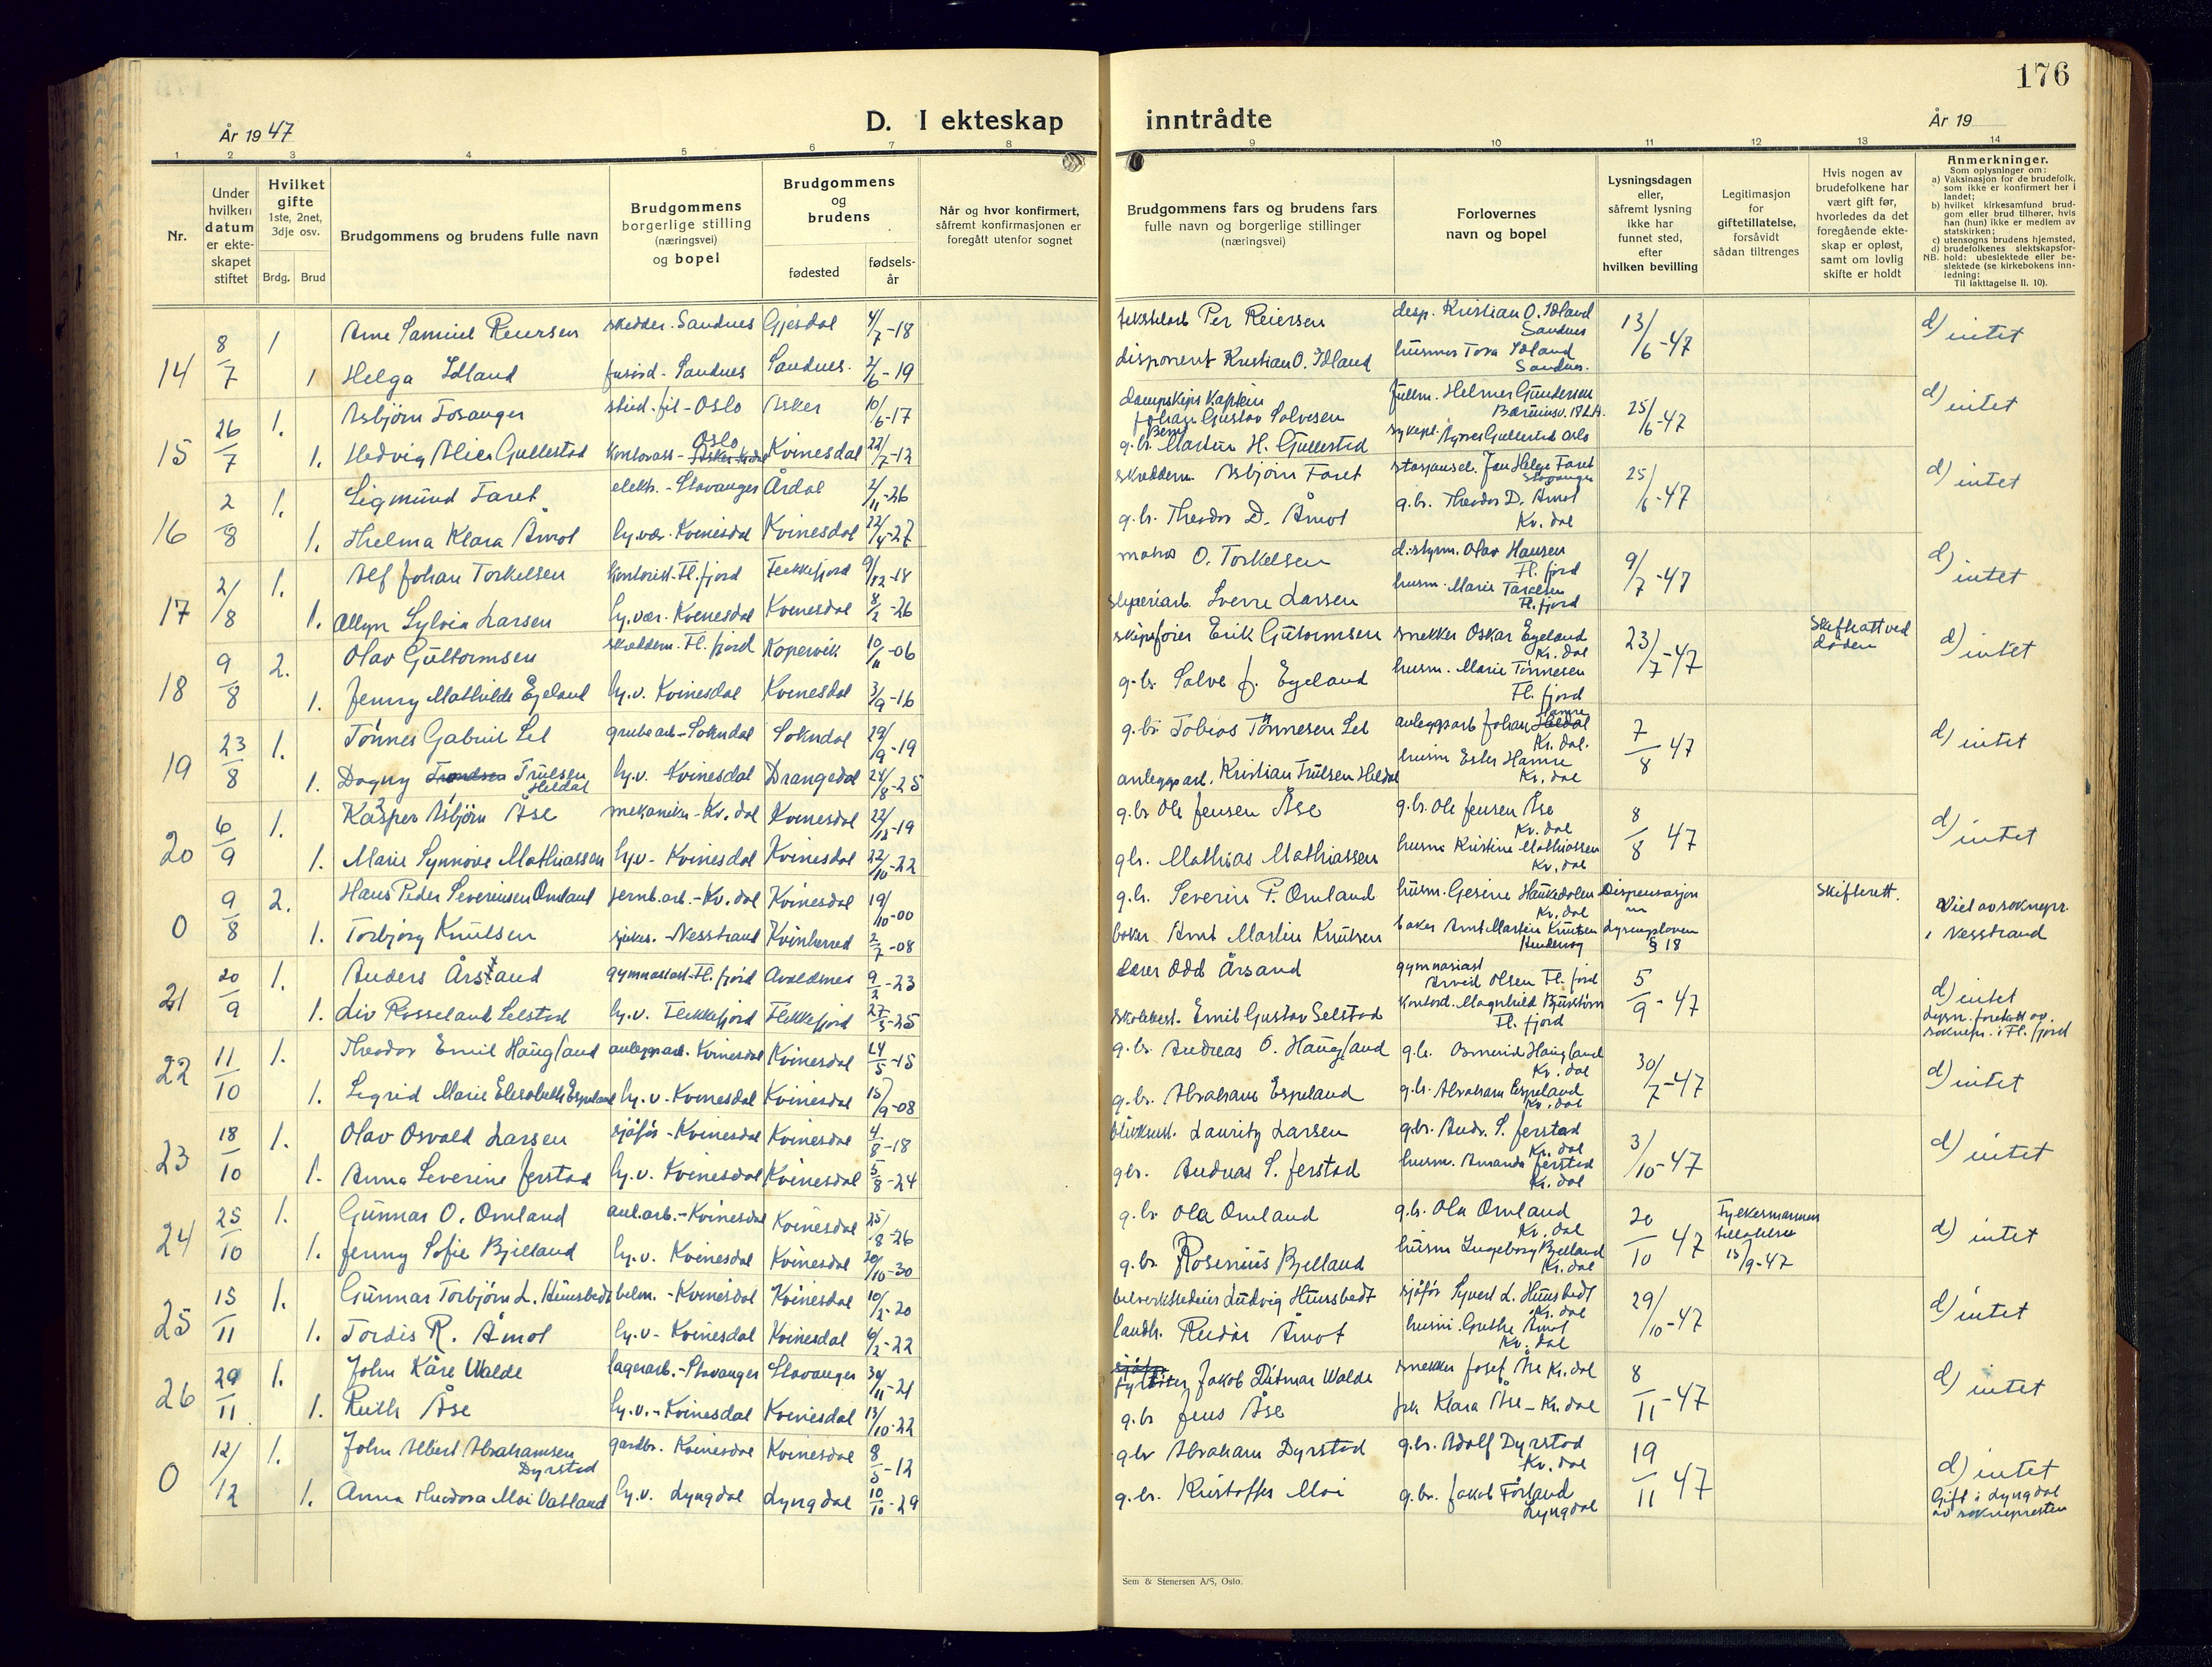 176
År 19 47
D. I ekteskap inntrådte
År 19
1 2 3 4 5 6 7 8 9 10 11 12 13 14
Nr.
Under hvilken datum er ekteskapet stiftet
Hvilket gifte
1ste, 2net, 3dje osv.
Brdg. Brud
Brudgommens og brudens fulle navn
Brudgommens borgerlige stilling (næringsvei) og bopel
Brudgommens og brudens
fødested
fødselsår
Når og hvor konfirmert, såfremt konfirmasjonen er foregått utenfor sognet
Brudgommens fars og brudens fars fulle navn og borgerlige stillinger (næringsvei)
Forlovernes navn og bopel
Lysningsdagen eller, såfremt lysning ikke har funnet sted, efter hvilken bevilling
Legitimasjon for giftetillatelse, forsåvidt sådan tiltrenges
Hvis nogen av brudefolkene har vært gift før, hvorledes da det foregående ekteskap er opløst, samt om lovlig skifte er holdt
Anmerkninger.
Som oplysninger om:
a) Vaksinasjon for de brudefolk, som ikke er konfirmert her i landet;
b) hvilket kirkesamfund brudgom eller brud tilhører, hvis han (hun) ikke er medlem av statskirken;
c) utensogns brudens hjemsted,
d) brudefolkenes slektskapsforhold: ubeslektede eller beslektede (se kirkebokens innledning:
NB. Til iakttagelse II. 10).
14 8/7 1 Arne Samuel Reiersen skredder. Sandnes Gjesdal 4/7-18 Per Reiersen desp. Kristian O. Idland Sandnes 13/6-47 d) intet
1 Helga Idland Sandnes Sandnes. 2/6-19 disponent Kristian O. Idland husmor Tora Idland Sandnes.
15 26/7 1. Asbjørn Tosanger stud. fil - Oslo Asker 10/6-17 Dampskips Kaptein Johan Gustav Salvesen fullm. Helmer Gundersen 25/6-47 d) intet
1. Hedvig Alice Gullestad kontorass - Oslo Kvinesdal 22/7-12 g.br. Martin H. Gullestad sykepl. Agnes Gullestad Oslo
16 2/8 1. Sigmund Faret elektr. - Stavanger Årdal 2/11-26 skredderm. Asbjørn Faret Jan Helge Faret Stavanger 25/6-47 d) intet
1. Thelma Klara Åmot hj.vær. Kvinesdal Kvinesdal 22/4-27 g.br. Theodor D. Åmot g.br. Theodor D. Åmot Kv. dal
17 2/8 1. Alf Johan Torkelsen kontorist - Fl. fjord Flekkefjord 9/12-18 O. Torkelsen Olav Hansen Fl. fjord 9/7-47 d) intet
1. Allyn Sylvia Larsen hj.vær. Kvinesdal Kvinesdal 8/2-26 sliperiarb. Sverre Larsen husm. Marie Fl. fjord
18 9/8 2. Olav Guttormsen skredderm. Fl. fjord Kopervik 10/11-06 skipsfører Erik Gutormsen snekker Oskar Egeland Kv. dal 23/7-47 Skifteatt ved døden d) intet
1. Jenny Mathilde Egeland hj.v. Kvinesdal Kvinesdal 3/9-16 g.br. Salve J. Egeland husm. Marie Tønnesen Fl. fjord
19 23/8 1. Tønnes Gabriel Sel grubearb - Sokndal Sokndal 29/9-19 g.br. Tobias Tønnesen Sel anleggsarb Johan Hamre Kv. dal. 7/8 47 d) intet
1. Dagny Trulsen Heldal hj.v. Kvinesdal Drangedal 24/8-25 anleggsarb. Kristian Trulsen Heldal husm Ester Hamre Kv. dal
20 6/9 1. Kasper Asbjørn Åse mekaniker - Kv. dal Kvinesdal 22/12-19 g.br. Ole Jensen Åse g.br. Ole Jensen Åse Kv. dal 8/8 47 d) intet
1. Marie Synnøve Mathiassen hj.v - Kvinesdal Kvinesdal 22/10-22 gbr. Mathias Mathiassen husm Kristine Mathiassen Kv. dal
0 9/8 2. Hans Peder Severinsen Omland jernb.arb. - Kv. dal Kvinesdal 19/10-00 g.br. Severin P. Omland husm. Gesine Haukedalen Kv. dal Dispensasjon Skifterett. Viet av soknepr. i Nesstrand
1. Torbjørg Knutsen Nesstrand Kvinherred 2/7-08 baker Arnt Martin Knutsen baker Arnt Martin Knutsen § 18
21 20/9 1. Anders Årsand gymnasiast - Fl. fjord Avaldsnes 9/2-23 Lærer Odd Årsand gymnasiast Arvid Olsen Fl. fjord 5/9-47 d) intet
1. Liv Rosseland Selstad hj.v. Flekkefjord Flekkefjord 27/3-25 skolebest. Emil Gustav Selstad Magnhild Fl. fjord Lysn. foretatt av soknepr. i Fl. fjord
22 11/10 1. Theodor Emil Haugland anleggsarb. Kvinesdal Kvinesdal 24/5-15 g.br. Andreas O. Haugland g.br. Osmund Haugland Kv. dal 30/7-47 d) intet
1. Sigrid Marie Elisabeth Espeland hj.v. Kvinesdal Kvinesdal 15/9-08 g.br. Abraham Espeland g.br. Abraham Espeland Kv. dal
23 18/10 1. Olav Osvald Larsen sjåfør - Kvinesdal Kvinesdal 4/8-18 Lauritz Larsen g.br. Andr. S. Jerstad Kv. dal 3/10-47 d) intet
1. Anna Severine Jerstad hj.v. Kvinesdal Kvinesdal 5/8-24 gbr. Andreas S. Jerstad husm. Amanda Jerstad Kv. dal
24 25/10 1. Gunnar O. Omland anl.arb. - Kvinesdal Kvinesdal 25/8-26 g.br Ola Omland g.br. Ola Omland Kv. dal 20/10 47 Fylkesmannens tillatelse 15/9-47 d) intet
1. Jenny Sofie Bjelland hj.v. Kvinesdal Kvinesdal 20/10-30 g.br. Rosenius Bjelland husm Ingeborg Bjelland Kv. dal
25 15/11 1. Gunnar Torbjørn L. Hunsbedt - Kvinesdal Kvinesdal 10/2-20 Ludvig Hunsbedt sjåfør Syvert L. Hunsbedt Kv. dal 29/10-47 d) intet
1. Tordis R. Åmot hj.v - Kvinesdal Kvinesdal 6/2-22 landh. Reidar Åmot husm. Grethe Åmot Kv. dal
26 29/11 1. John Kåre Walde lagerarb. - Stavanger Stavanger 30/11-21 Jakob Ditmar Walde snekker Josef Åse Kv. dal 8/11-47 d) intet
1. Ruth Åse hj.v. - Kvinesdal Kvinesdal 13/10-22 g.br Jens Åse frk Klara Åse - Kv. dal
0 12/12 1. John Albert Abrahamsen Dyrstad gardbr. Kvinesdal Kvinesdal 8/5-12 g.br Abraham Dyrstad g.br. Adolf Dyrstad Kv. dal 19/11 47 d) intet
1. Anna Theodora Moi Vatland hj.v. Lyngdal Lyngdal 10/10-29 g.br. Kristoffer Moi g.br. Jakob Förland Lyngdal Gift i Lyngdal av soknepresten
Sem & Stenersen A/S, Oslo.